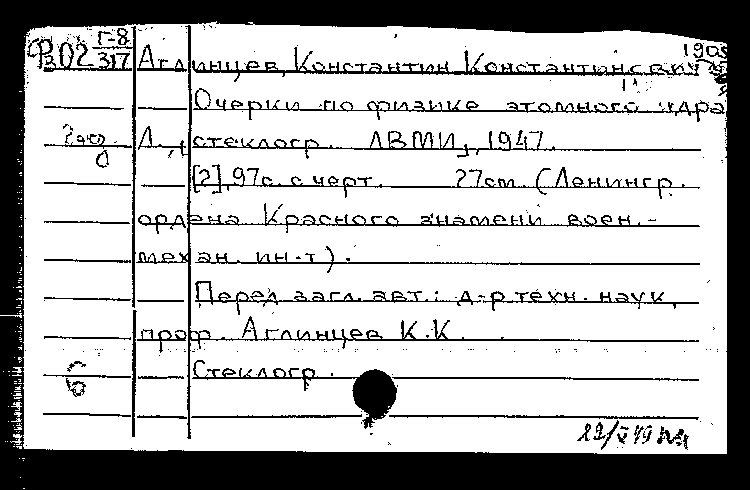 Г-8
ФВ02 317 Аглинцев, Константин Константинович 1905
Очерки по физике атомного ядра
Л., [стеклогр. ЛВМИ], 1947.
[2], 97с. с черт. 27см. (Ленингр.
ордена Красного знамени воен.-
механ. ин-т).
Перед загл. авт.: д-р техн. наук,
проф. Аглинцев К.К.
Стеклогр.